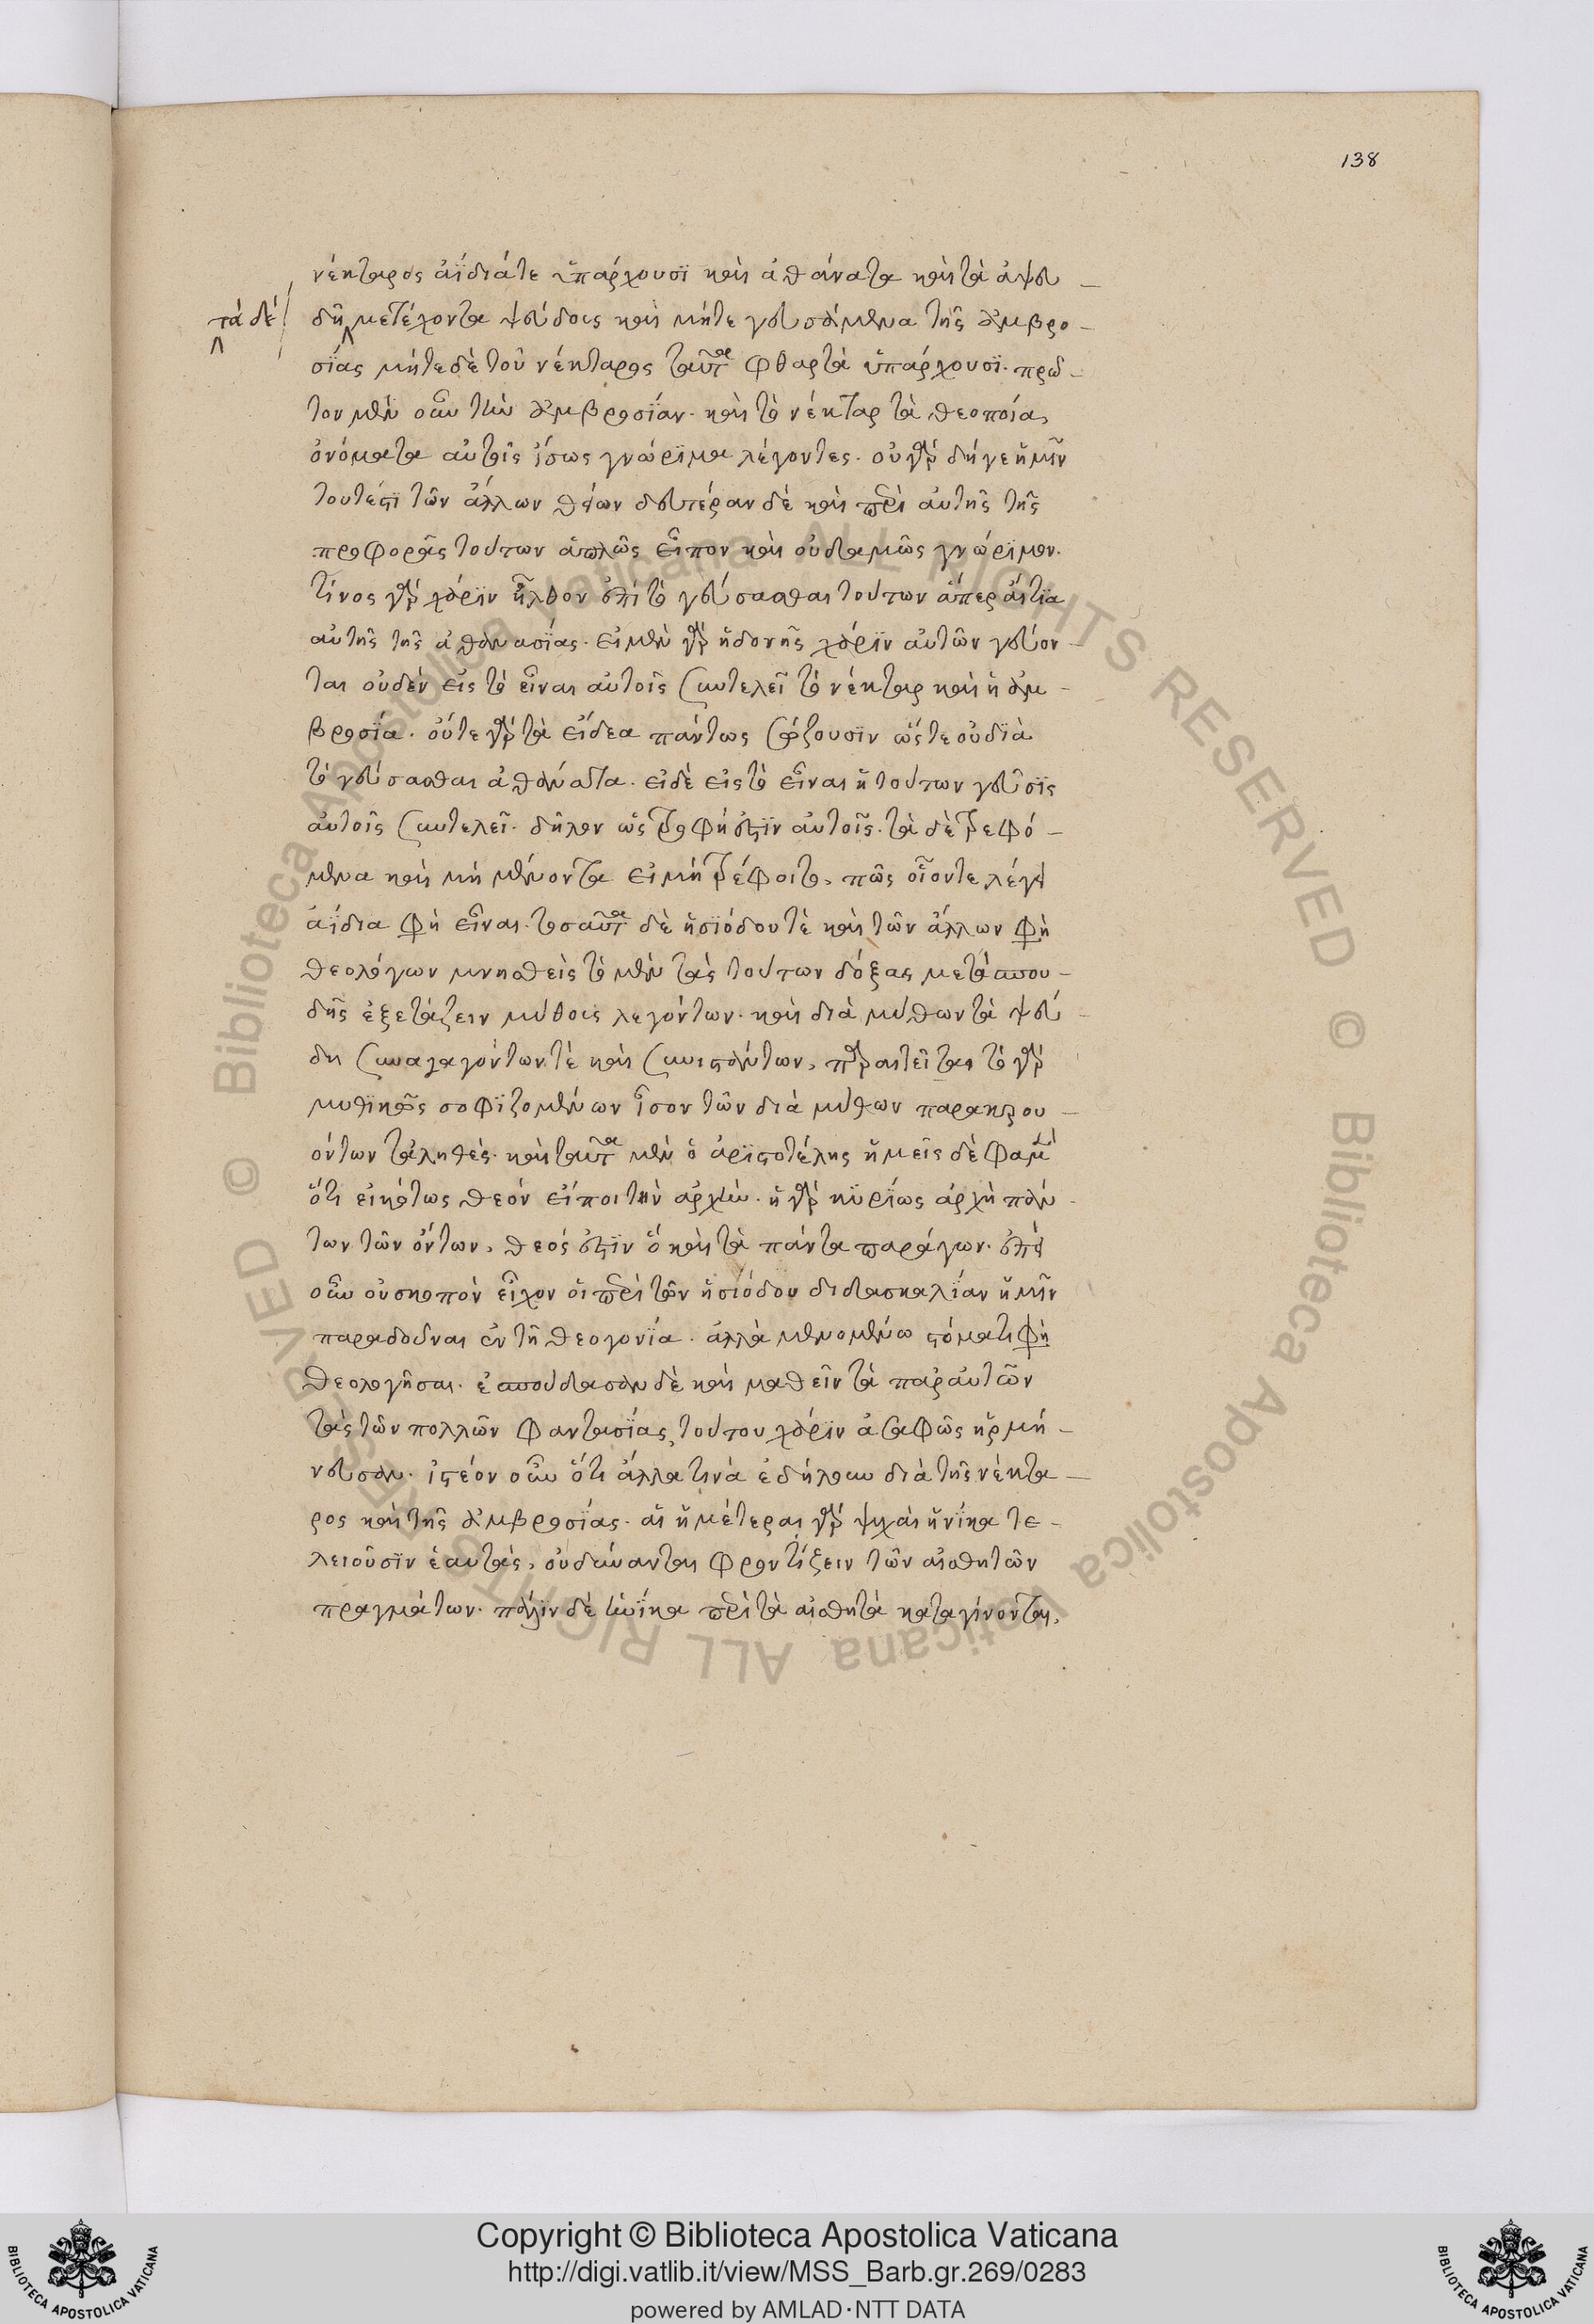 138
νέκταρος ἀΐδιά τε ὑπάρχουσϊ καὶ ἀθάνατα καὶ τὰ ἀψευ-
τὰ δὲ
δῆ μετέχοντα ψεύδοις καὶ μήτε γευσάμενα τῆς ἀμβρο-
σϊας μήτε δὲ τοῦ νέκταρος ταῦτα φθαρτὰ ὑπάρχουσϊ. πρῶ-
τον μὲν οὖν τὴν ἀμβροσϊαν. καὶ τὸ νέκταρ τὰ θεοποία,
ὀνόματα αὐτοῖς ἴσως γνώρϊμα λέγοντες. οὐ γὰρ δήγε ἡμῖν
τουτέστι τῶν ἄλλων θείων δευτέραν δὲ καὶ περὶ αὐτῆς τῆς
προφορᾶς τούτων ἁπλῶς εἶπον καὶ οὐδαμῶς γνώρϊμον.
τίνος γὰρ χάρϊν ἦλθον ἐπὶ τὸ γεύσασθαι τούτων ἅπερ αἴτϊα
αὐτῆς τῆς ἀθανασϊας. εἰ μὲν γὰρ ἡδονῆς χάρϊν αὐτῶν γεύον-
ται οὐδὲν εἰς τὸ εἶναι αὐτοῖς συντελεῖ τὸ νέκταρ καὶ ἡ ἀμ-
βροσϊα. οὔτε γὰρ τὰ εἴδεα πάντως σώζουσϊν ὥστε οὐ δϊὰ
τὸ γεύσασθαι ἀθάνατα. εἰ δὲ εἰς τὸ εἶναι ἡ τούτων γεῦσϊς
αὐτοῖς συντελεῖ. δῆλον ὡς τροφή ἐστϊν αὐτοῖς. τὰ δὲ τρεφό-
μενα καὶ μὴ μένοντα εἰ μὴ τρέφοιτο, πῶς οἷόν τε λέγει
ἀΐδια φὴ εἶναι. τοσαῦτα δὲ ἡσϊόδου τὲ καὶ τῶν ἄλλων φὴ
θεολόγων μνησθεὶς τὸ μὲν τὰς τούτων δόξας μετὰ σπου-
δῆς ἐξετάζειν μύθοις λεγόντων. καὶ διὰ μύθων τὰ ψευ-
δη συναγαγόντων τὲ καὶ συνιστάντων, παραιτεῖται τὸ γὰρ
μυθϊκῶς σοφϊζομένων ἶσον τῶν διὰ μύθων παρακρου-
όντων τἀληθές. καὶ ταῦτα μὲν ὁ ἀρϊστοτέλης ἡμεῖς δὲ φαμὲν
ὅτι εἰκότως θεόν εἴποι τὴν ἀρχήν. ἡ γὰρ κϋρϊως ἀρχὴ πάν-
των τῶν ὄντων, θεός ἐστϊν ὁ καὶ τὰ πάντα παράγων. ἐπεὶ
οὖν οὐ σκοπὸν εἶχον οἱ περὶ τὸν ἡσιόδου διδασκαλϊαν ἡμῖν
παραδοῦναι ἐν τῆ θεογονϊα. ἀλλὰ μενομένω στόματι φὴ
θεολογῆσαι. ἐσπούδασαν δὲ καὶ μαθεῖν τὰ παρ' αὐτῶν
τὰς τῶν πολλῶν φαντασϊας, τούτου χάρϊν ἀσαφῶς ἡρμή-
νευσαν. ἰστέον οὖν ὅτι ἄλλα τινὰ ἐδήλουν διὰ τῆς νέκτα-
ρος καὶ τῆς ἀμβροσϊας. αἱ ἡμέτεραι γὰρ ψυχαὶ ἡνϊκα τε-
λειοῦσϊν ἑαυτάς, οὐ δύνανται φροντίζειν τῶν αἰσθητῶν
πραγμάτων. πάλϊν δὲ ἡνϊκα περὶ τὰ αἰσθητὰ καταγίνονται,
Copyright © Biblioteca Apostolica Vaticana
http://digi.vatlib.it/view/MSS_Barb.gr.269/0283
powered by AMLAD·NTT DATA